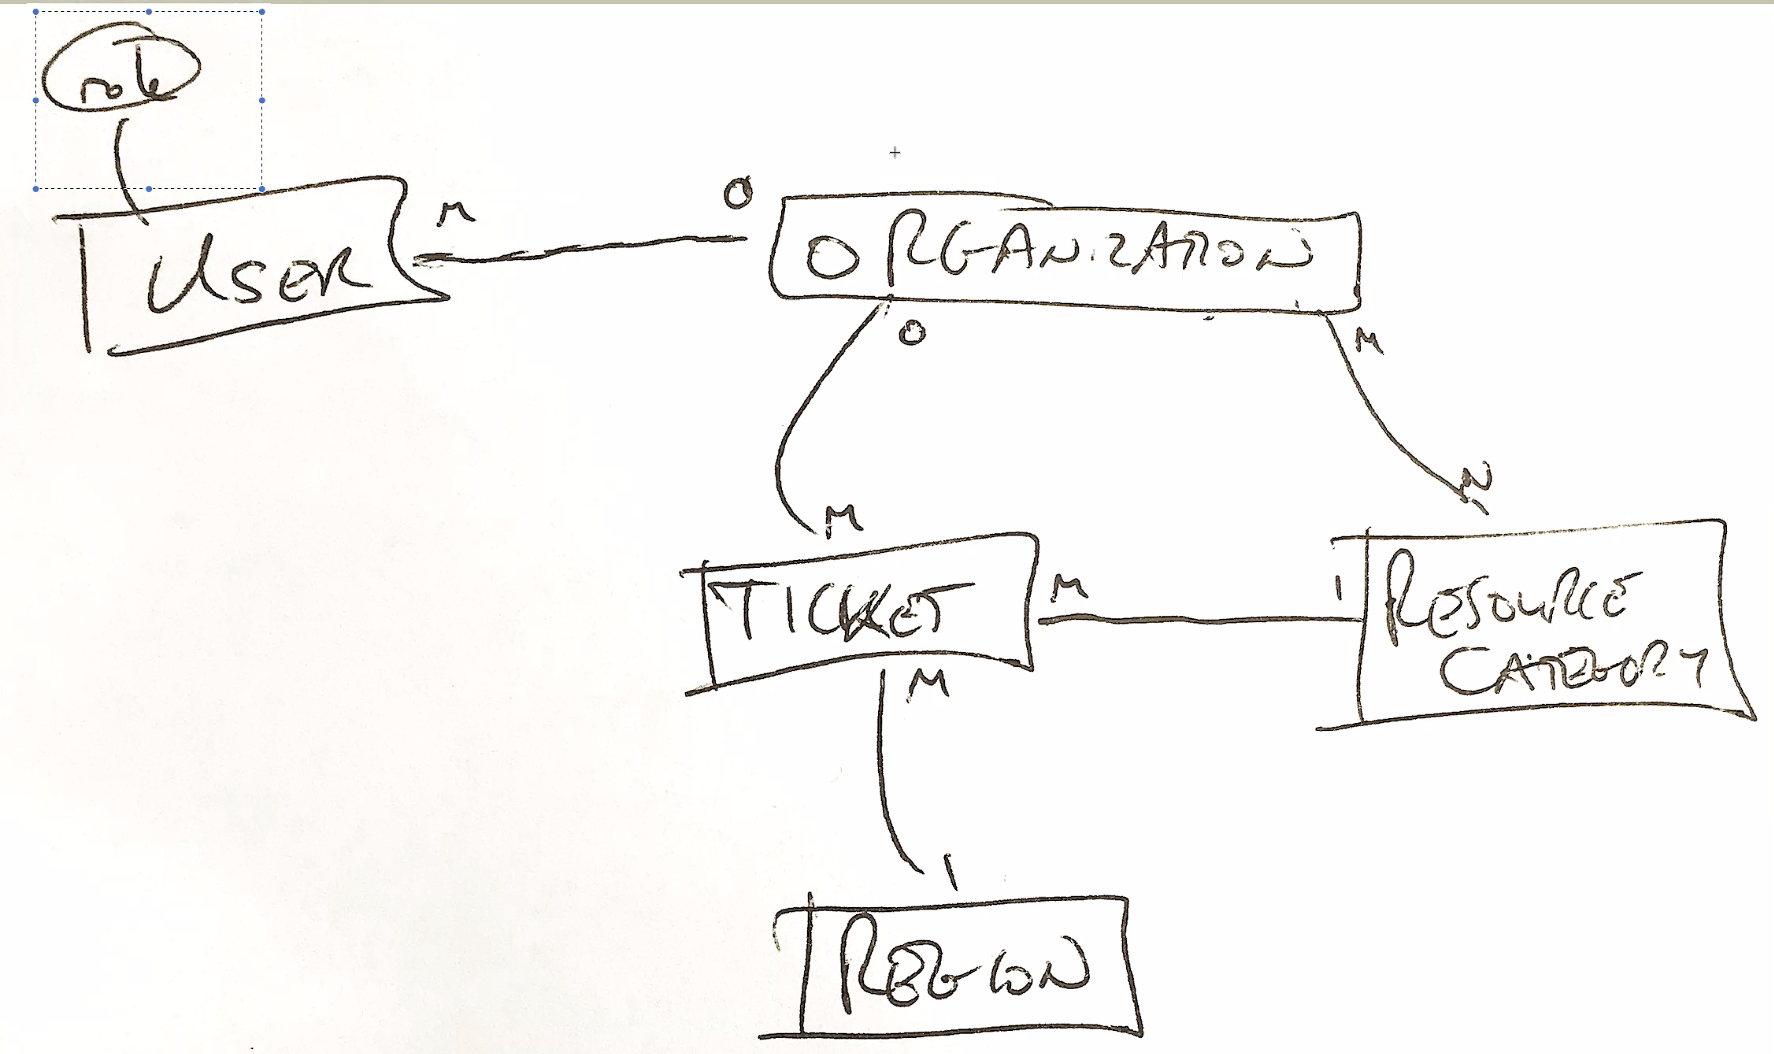 role
M
O
USER
ORGANIZATION
O
M
N
M
TICKET
M
1
RESOURCE
CATEGORY
M
1
REGION